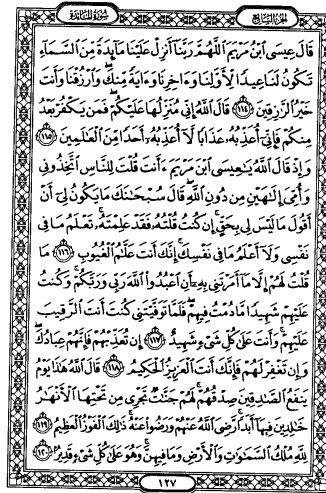 الجزء السابع
سورة المائدة
قَالَ عِيسَى ابْنُ مَرْيَمَ اللَّهُمَّ رَبَّنَا أَنزِلْ عَلَيْنَا مَائِدَةً مِّنَ السَّمَاءِ
تَكُونُ لَنَا عِيدًا لِّأَوَّلِنَا وَءَاخِرِنَا وَءَايَةً مِّنكَ وَارْزُقْنَا وَأَنتَ
خَيْرُ الرَّٰزِقِينَ ١١٤ قَالَ اللَّهُ إِنِّي مُنَزِّلُهَا عَلَيْكُمْ فَمَن يَكْفُرْ بَعْدُ
مِنكُمْ فَإِنِّي أُعَذِّبُهُ عَذَابًا لَّا أُعَذِّبُهُ أَحَدًا مِّنَ الْعَٰلَمِينَ ١١٥
وَإِذْ قَالَ اللَّهُ يَٰعِيسَى ابْنَ مَرْيَمَ ءَأَنتَ قُلْتَ لِلنَّاسِ اتَّخِذُونِي
وَأُمِّيَ إِلَٰهَيْنِ مِن دُونِ اللَّهِ قَالَ سُبْحَٰنَكَ مَا يَكُونُ لِي أَنْ
أَقُولَ مَا لَيْسَ لِي بِحَقٍّ إِن كُنتُ قُلْتُهُ فَقَدْ عَلِمْتَهُ تَعْلَمُ مَا فِي
نَفْسِي وَلَا أَعْلَمُ مَا فِي نَفْسِكَ إِنَّكَ أَنتَ عَلَّٰمُ الْغُيُوبِ ١١٦
مَا قُلْتُ لَهُمْ إِلَّا مَا أَمَرْتَنِي بِهِ أَنِ اعْبُدُوا اللَّهَ رَبِّي وَرَبَّكُمْ وَكُنتُ
عَلَيْهِمْ شَهِيدًا مَّا دُمْتُ فِيهِمْ فَلَمَّا تَوَفَّيْتَنِي كُنتَ أَنتَ الرَّقِيبَ
عَلَيْهِمْ وَأَنتَ عَلَىٰ كُلِّ شَيْءٍ شَهِيدٌ ١١٧ إِن تُعَذِّبْهُمْ فَإِنَّهُمْ عِبَادُكَ
وَإِن تَغْفِرْ لَهُمْ فَإِنَّكَ أَنتَ الْعَزِيزُ الْحَكِيمُ ١١٨ قَالَ اللَّهُ هَٰذَا يَوْمُ
يَنفَعُ الصَّٰدِقِينَ صِدْقُهُمْ لَهُمْ جَنَّٰتٌ تَجْرِي مِن تَحْتِهَا الْأَنْهَٰرُ
خَٰلِدِينَ فِيهَا أَبَدًا رَّضِيَ اللَّهُ عَنْهُمْ وَرَضُوا عَنْهُ ذَٰلِكَ الْفَوْزُ الْعَظِيمُ ١١٩
لِلَّهِ مُلْكُ السَّمَٰوَٰتِ وَالْأَرْضِ وَمَا فِيهِنَّ وَهُوَ عَلَىٰ كُلِّ شَيْءٍ قَدِيرٌ ١٢٠
١٢٧